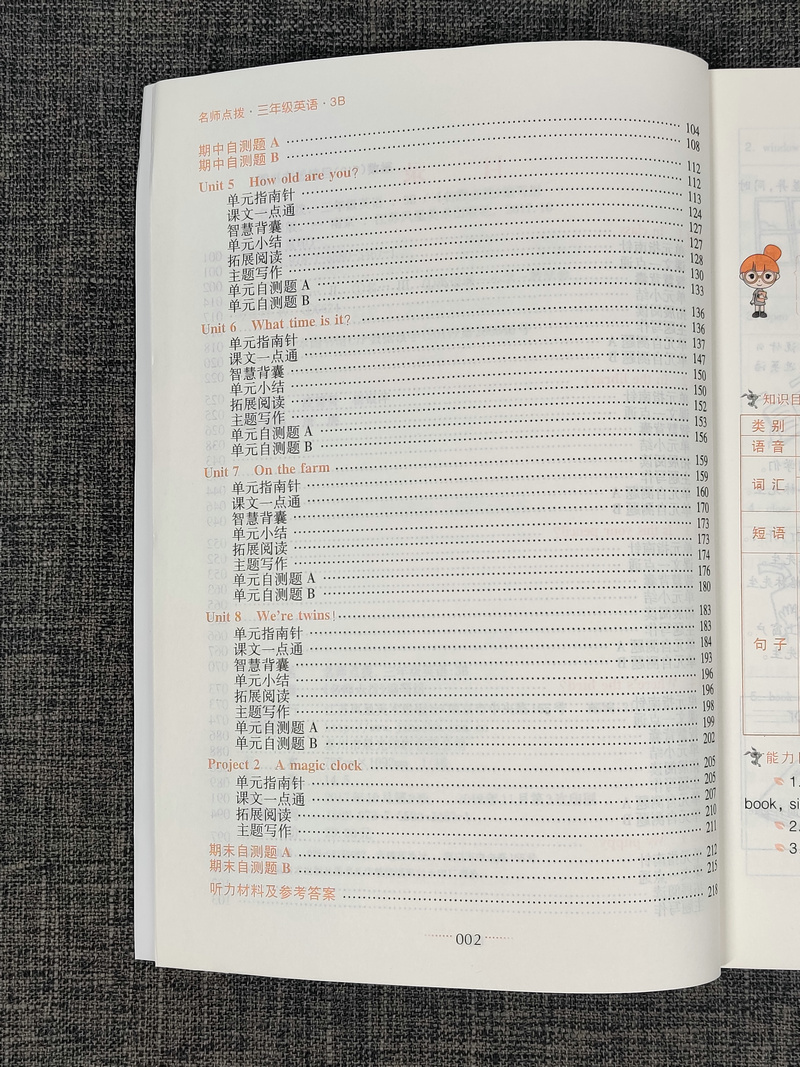 名师点拨·三年级英语·3B
期中自测题 A 104
期中自测题 B 108
Unit 5 How old are you? 112
单元指南针 112
课文一点通 113
智慧背囊 124
单元小结 127
拓展阅读 127
主题写作 128
单元自测题 A 130
单元自测题 B 133
Unit 6 What time is it? 136
单元指南针 136
课文一点通 137
智慧背囊 147
单元小结 150
拓展阅读 150
主题写作 152
单元自测题 A 153
单元自测题 B 156
Unit 7 On the farm 159
单元指南针 159
课文一点通 160
智慧背囊 170
单元小结 173
拓展阅读 173
主题写作 174
单元自测题 A 176
单元自测题 B 180
Unit 8 We're twins! 183
单元指南针 183
课文一点通 184
智慧背囊 193
单元小结 196
拓展阅读 196
主题写作 198
单元自测题 A 199
单元自测题 B 202
Project 2 A magic clock 205
单元指南针 205
课文一点通 207
拓展阅读 210
主题写作 211
期末自测题 A 212
期末自测题 B 215
听力材料及参考答案 218
002
知识
类别
语音
词汇
短语
句子
能力
1.
book,
2.
3